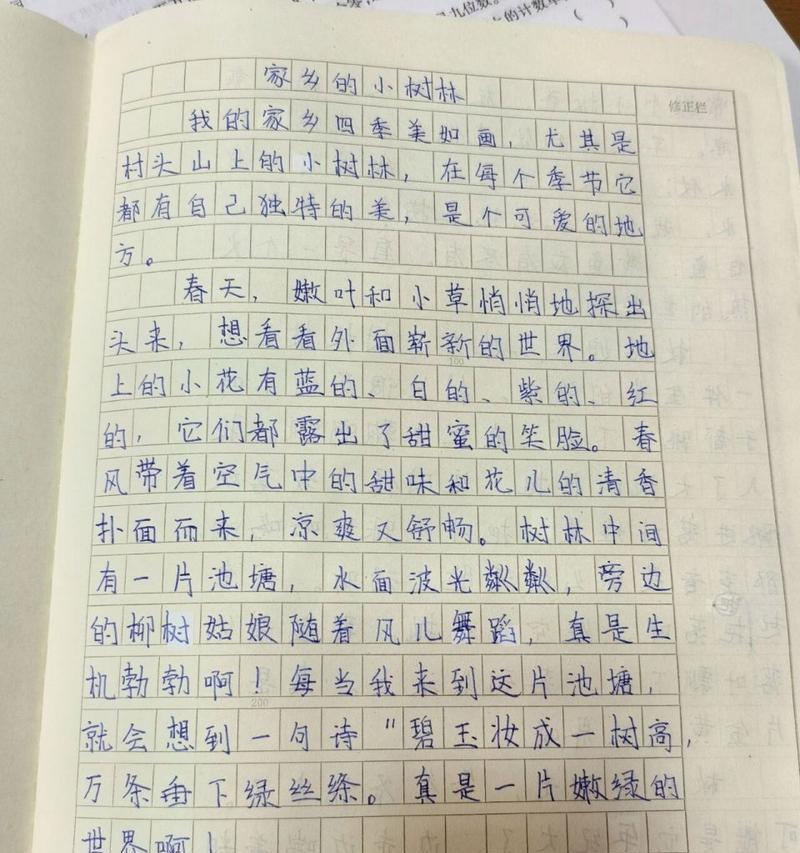 九位数。
的计数单
(      )
家乡的小树林
修正栏
我的家乡四季美如画，尤其是
村头山上的小树林，在每个季节它
都有自己独特的美，是个可爱的地
方。
春天，嫩叶和小草悄悄地探出
头来，想看看外面崭新的世界。地
100
上的小花有蓝的、白的、紫的、红
的，它们都露出了甜蜜的笑脸。春
风带着空气中的甜味和花儿的清香
扑面而来，凉爽又舒畅。树林中间
有一片池塘，水面波光粼粼，旁边
的柳树姑娘随着风儿舞蹈，真是生
机勃勃啊！每当我来到这片池塘，
200
就会想到一句诗“碧玉妆成一树高，
万条垂下绿丝绦。真是一片嫩绿的
世界啊！